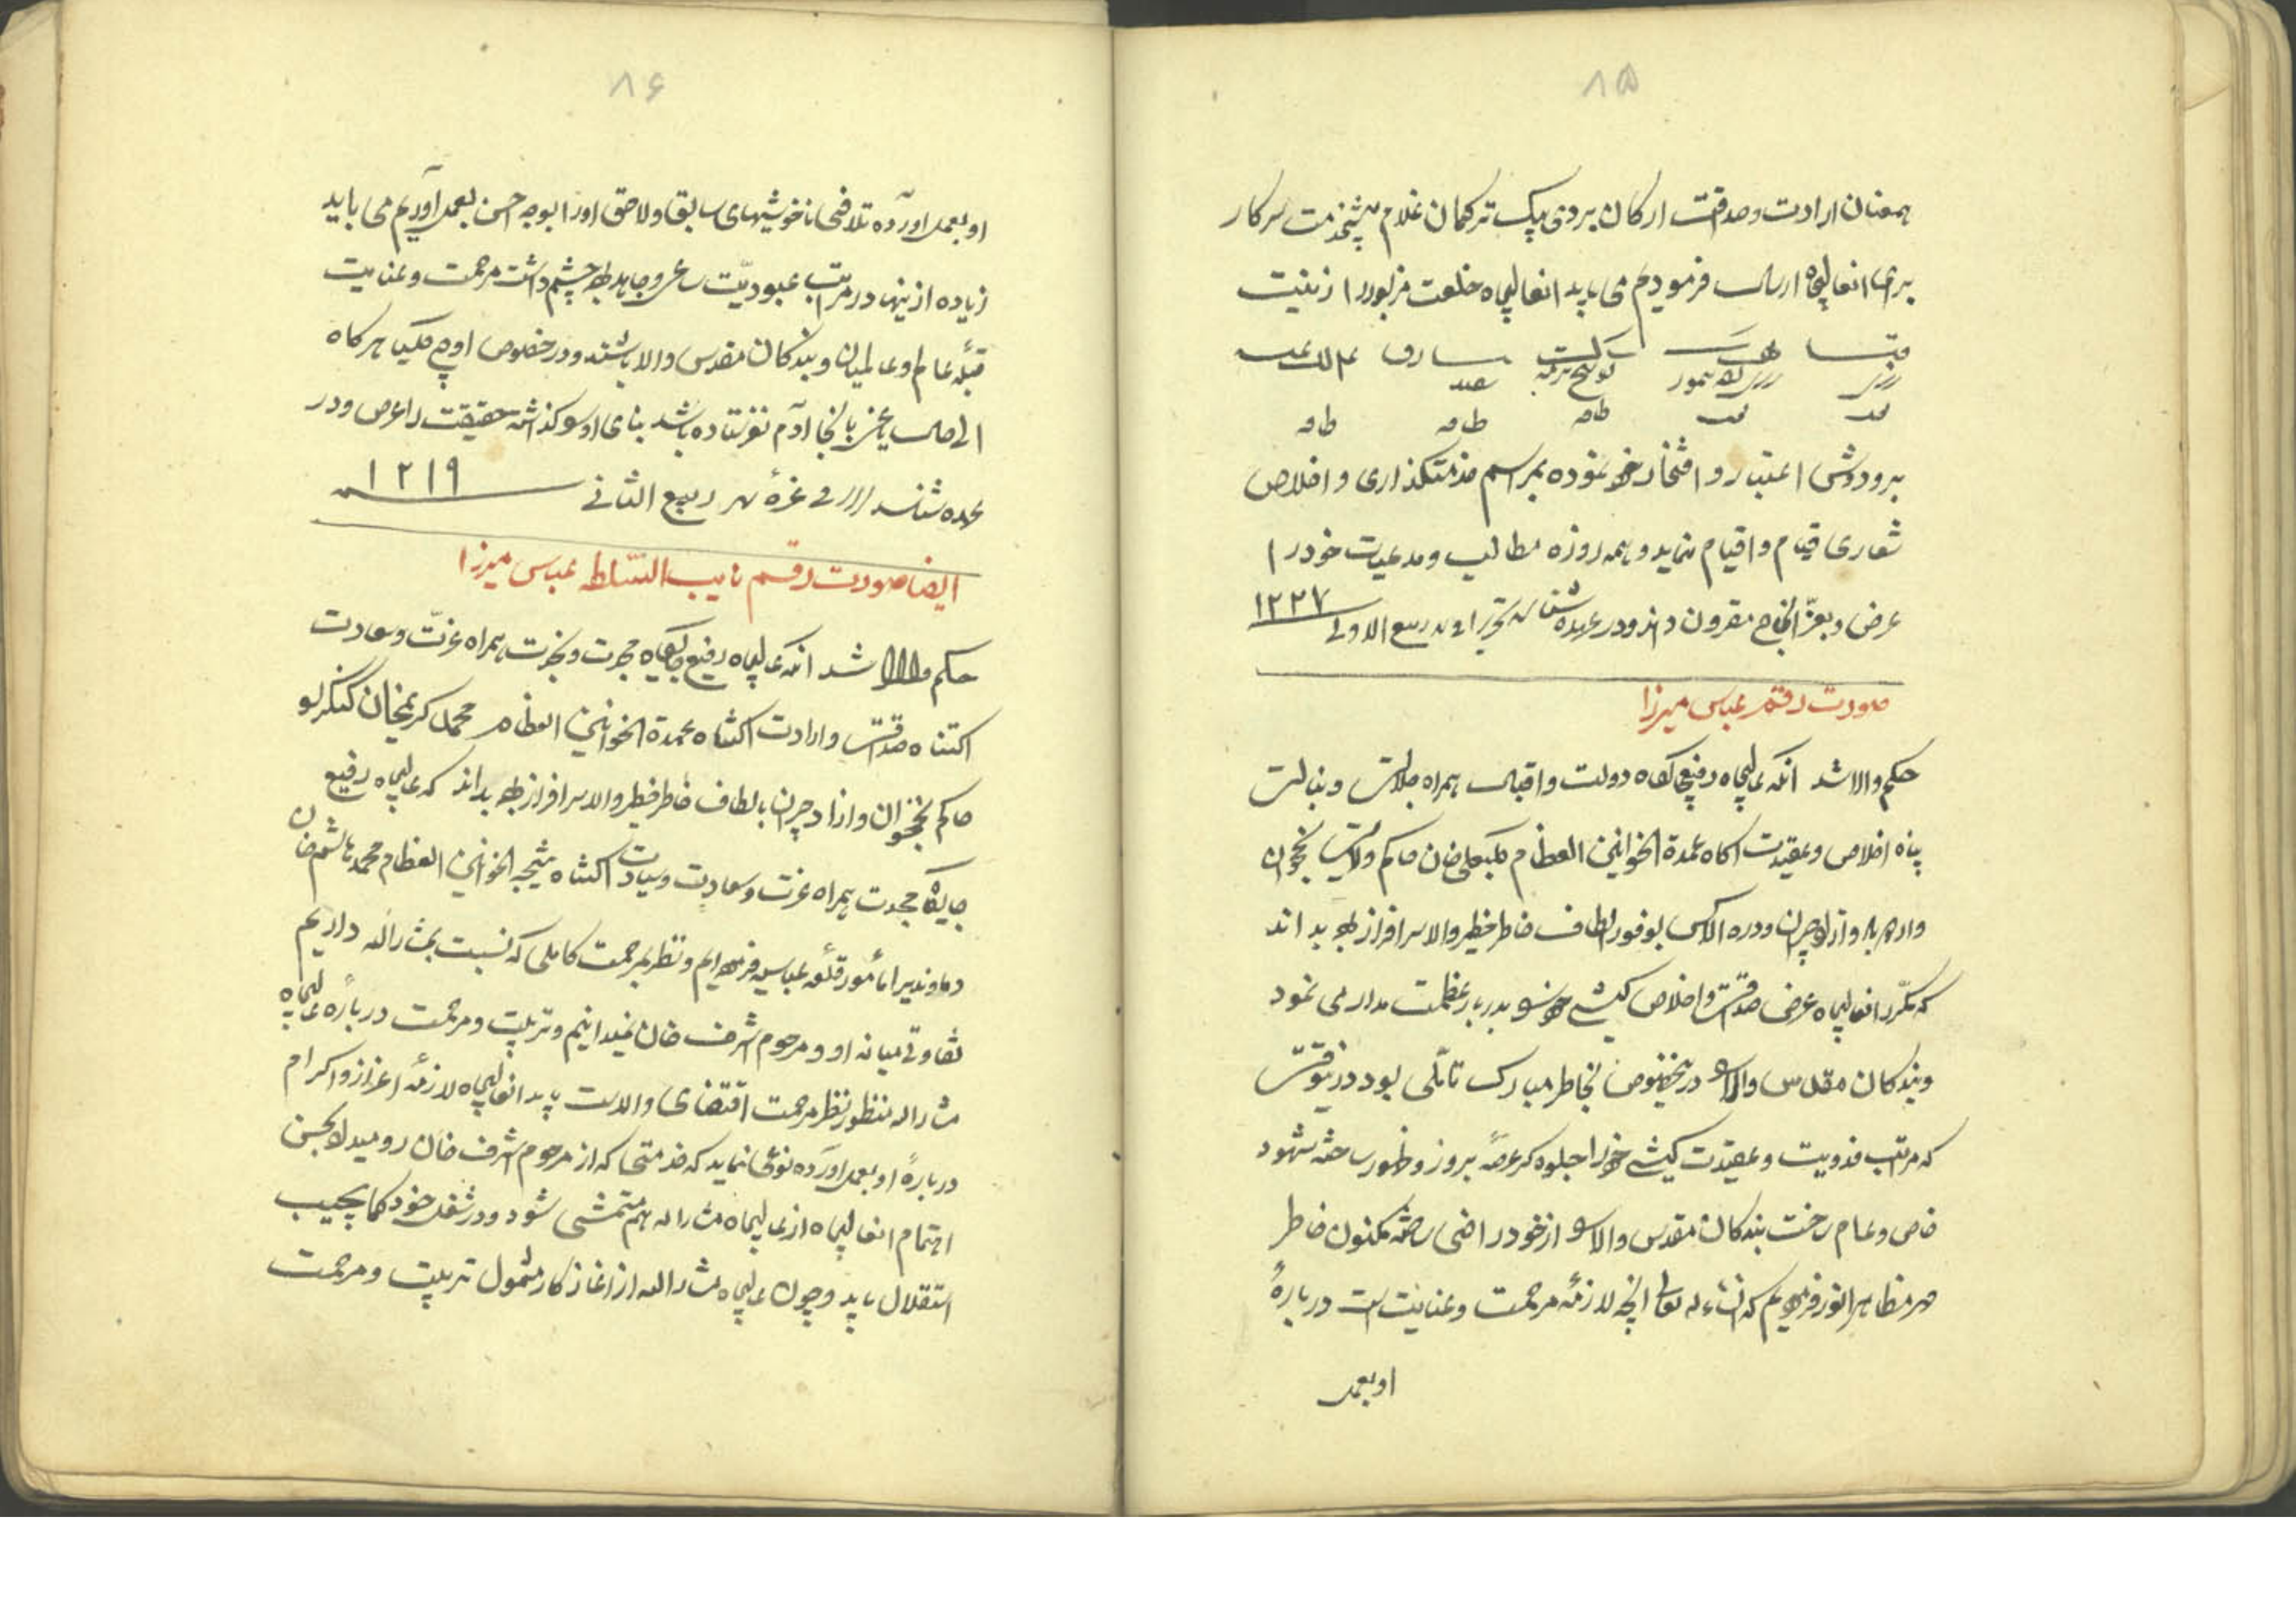 ۸۵
همعنان ارادت و صداقت ارکان بردی بیک ترکمان غلام پیشخدمت سرکار
برای انعالیجاه ارسال فرمودیم می باید انعالیجاه خلعت مزبور را زینت
بر و دوش اعتبار و افتخار خود نموده بمراسم خدمتکذاری و اخلاص
شعاری قیام و اقدام نماید و همه روزه مطالب و مدعیات خود را
عرض و بعزّ انجاح مقرون داند و در عهده شناسد تحریرا فی ربیع الاول ۱۲۲۷
صورت رقم عباس میرزا
حکم والا شد آنکه عالیجاه رفیعجایکاه دولت و اقبال همراه جلالت و بنالت
پناه اخلاص و عقیدت اکاه عمدة الخوانین العظام کلبعلی خان حاکم ولایت نخجوان
و ازادجیران و دره الاکس بوفور الطاف خاطر خطیر والا سرافراز بوده بداند
که مکرّر انعالیجاه عرض صداقت و اخلاص کیشی خود بدربار عظمت مدار می نمود
و بندکان مقدس والا در اینخصوص بخاطر مبارک تاملی بود در اینوقت
که مراتب فدویت و عقیدت کیشی خود را جلوه کر عرصه بروز و ظهور ساخته شهود
خاص و عام ساخت بندکان مقدس والا از خود راضی ساخته مکنون خاطر
مهر مظاهر انور فرمودیم که انشاءالله تعالی انچه لازمه مرحمت و عنایت است درباره
او بعمل
۸۶
او بعمل اورده تلافی ناخوشیهای سابق و لاحق او را بوجه احسن بعمل آوریم می باید
زیاده از اینها در مراتب عبودیّت ساعی و جاهد بوده چشمداشت مرحمت و عنایت
قبلهٔ عالم و عالمیان و بندکان مقدس والا باشند و در خصوص اوچ کلیسا هرکاه
الی حال یاغی بانجا آدم نفرستاده باشد بنای او کذاشته حقیقت را عرض و در
عهده شناسد تحریرا فی غرهٔ شهر ربیع الثانی ۱۲۱۹
ایضا صورت رقم نایب السّلطنه عباس میرزا
حکم والا شد آنکه عالیجاه رفیع جایکاه مجدت و نجدت همراه عزّت و سعادت
اکتناه صداقت و ارادت اکتناه عمدة الخوانین العظام محمد کریمخان کنکرلو
حاکم نخجوان و ازادجیران بالطاف خاطر خطیر والا سرافراز بوده بداند که عالیجاه رفیع
جایکاه مجدت همراه عزت و سعادت و سیادت اکتناه نتیجه الخوانین العظام محمد هاشم خان
دماوندیرا مأمور قلعه عباسیه فرموده ایم و نظر بمرحمت کاملی که نسبت بمشارالیه داریم
تفاوتی میانه او و مرحوم اشرف خان نمیدانیم و تربیت و مرحمت درباره عالیجاه
مشارالیه منظور نظر مرحمت اقتضای والاست باید انعالیجاه لازمهٔ اعزاز و اکرام
دربارهٔ او بعمل آورده نوعی نماید که خدمتی که از مرحوم اشرف خان رو میداد بحسن
اهتمام انعالیجاه از عالیجاه مشارالیه هم متمشی شود و در شغل خود کمایجب
استقلال یابد و چون عالیجاه مشارالیه از اغاز کار مشمول تربیت و مرحمت